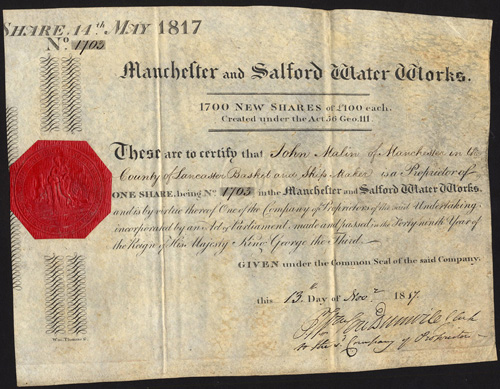 SHARE, 14th MAY 1817
No. 1703
Manchester and Salford Water Works.
1700 NEW SHARES of £100 each.
Created under the Act, 56 Geo. III.
These are to certify that John Malin of Manchester in the
County of Lancaster Basket and Skip Maker is a Proprietor of
ONE SHARE, being No. 1703 in the Manchester and Salford Water Works.
and is by virtue thereof One of the Company of Proprietors of the said Undertaking
incorporated by an Act of Parliament, made and passed in the Forty ninth Year of
the Reign of His Majesty King George the Third.
GIVEN under the Common Seal of the said Company.
this 13th Day of Novr 1817.
Clerk
to the sd. Company of Proprietors